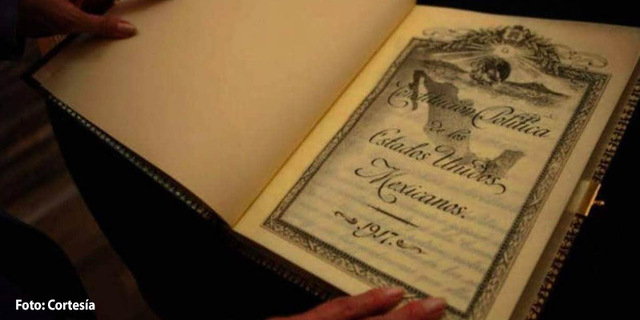 Constitución Política
de los
Estados Unidos
Mexicanos.
1917.
Foto: Cortesía